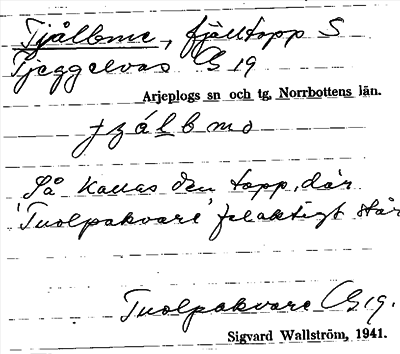 Tjålbme, fjälltopp S
Tjeggelvas C 19
Arjeplogs sn och tg, Norrbottens län.
tjálbmo
Så kallas den topp, där
'Tuolpakvare' felaktigt står
Tuolpakvare C 19.
Sigvard Wallström, 1941.